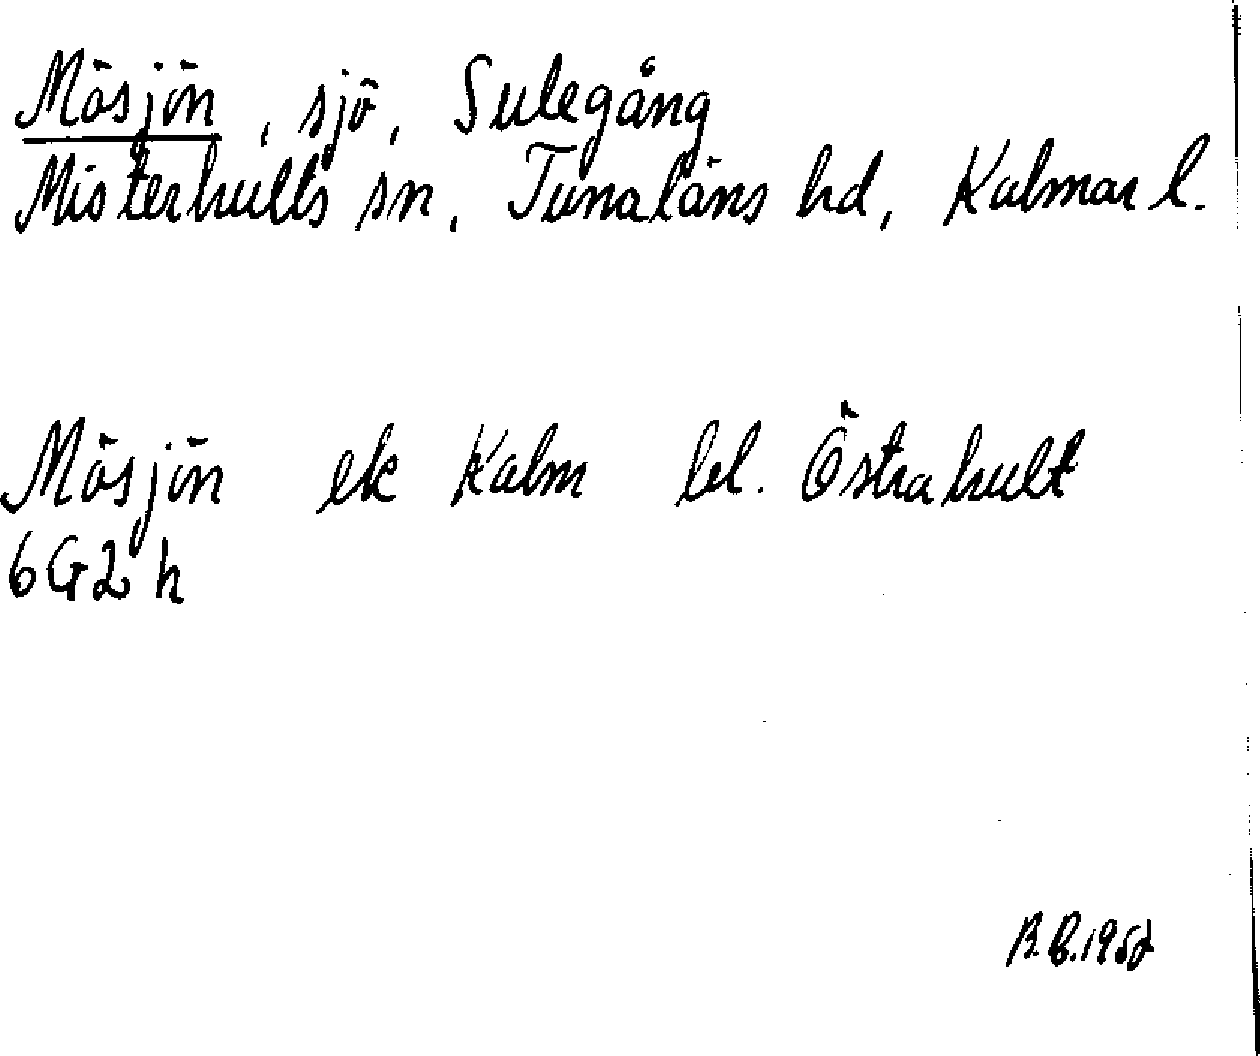 Mösjön, sjö, Sulegång
Misterhults sn, Tunaläns hd, Kalmar l.
Mösjön ek Kalm bl. Östrahult
6G2h